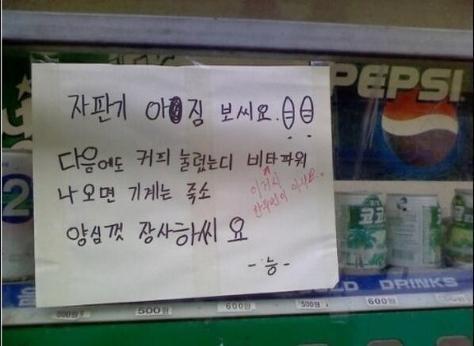 자판기 아짐 보씨요.
다음에도 커피 눌렀는디 비타파워
나오면 기계는 죽소
이거시
한두번이 아니요.
양심껏 장사하씨요
-능-
PEPSI
2
코코
COLD DRINKS
500원
500원
600원
500원
600원